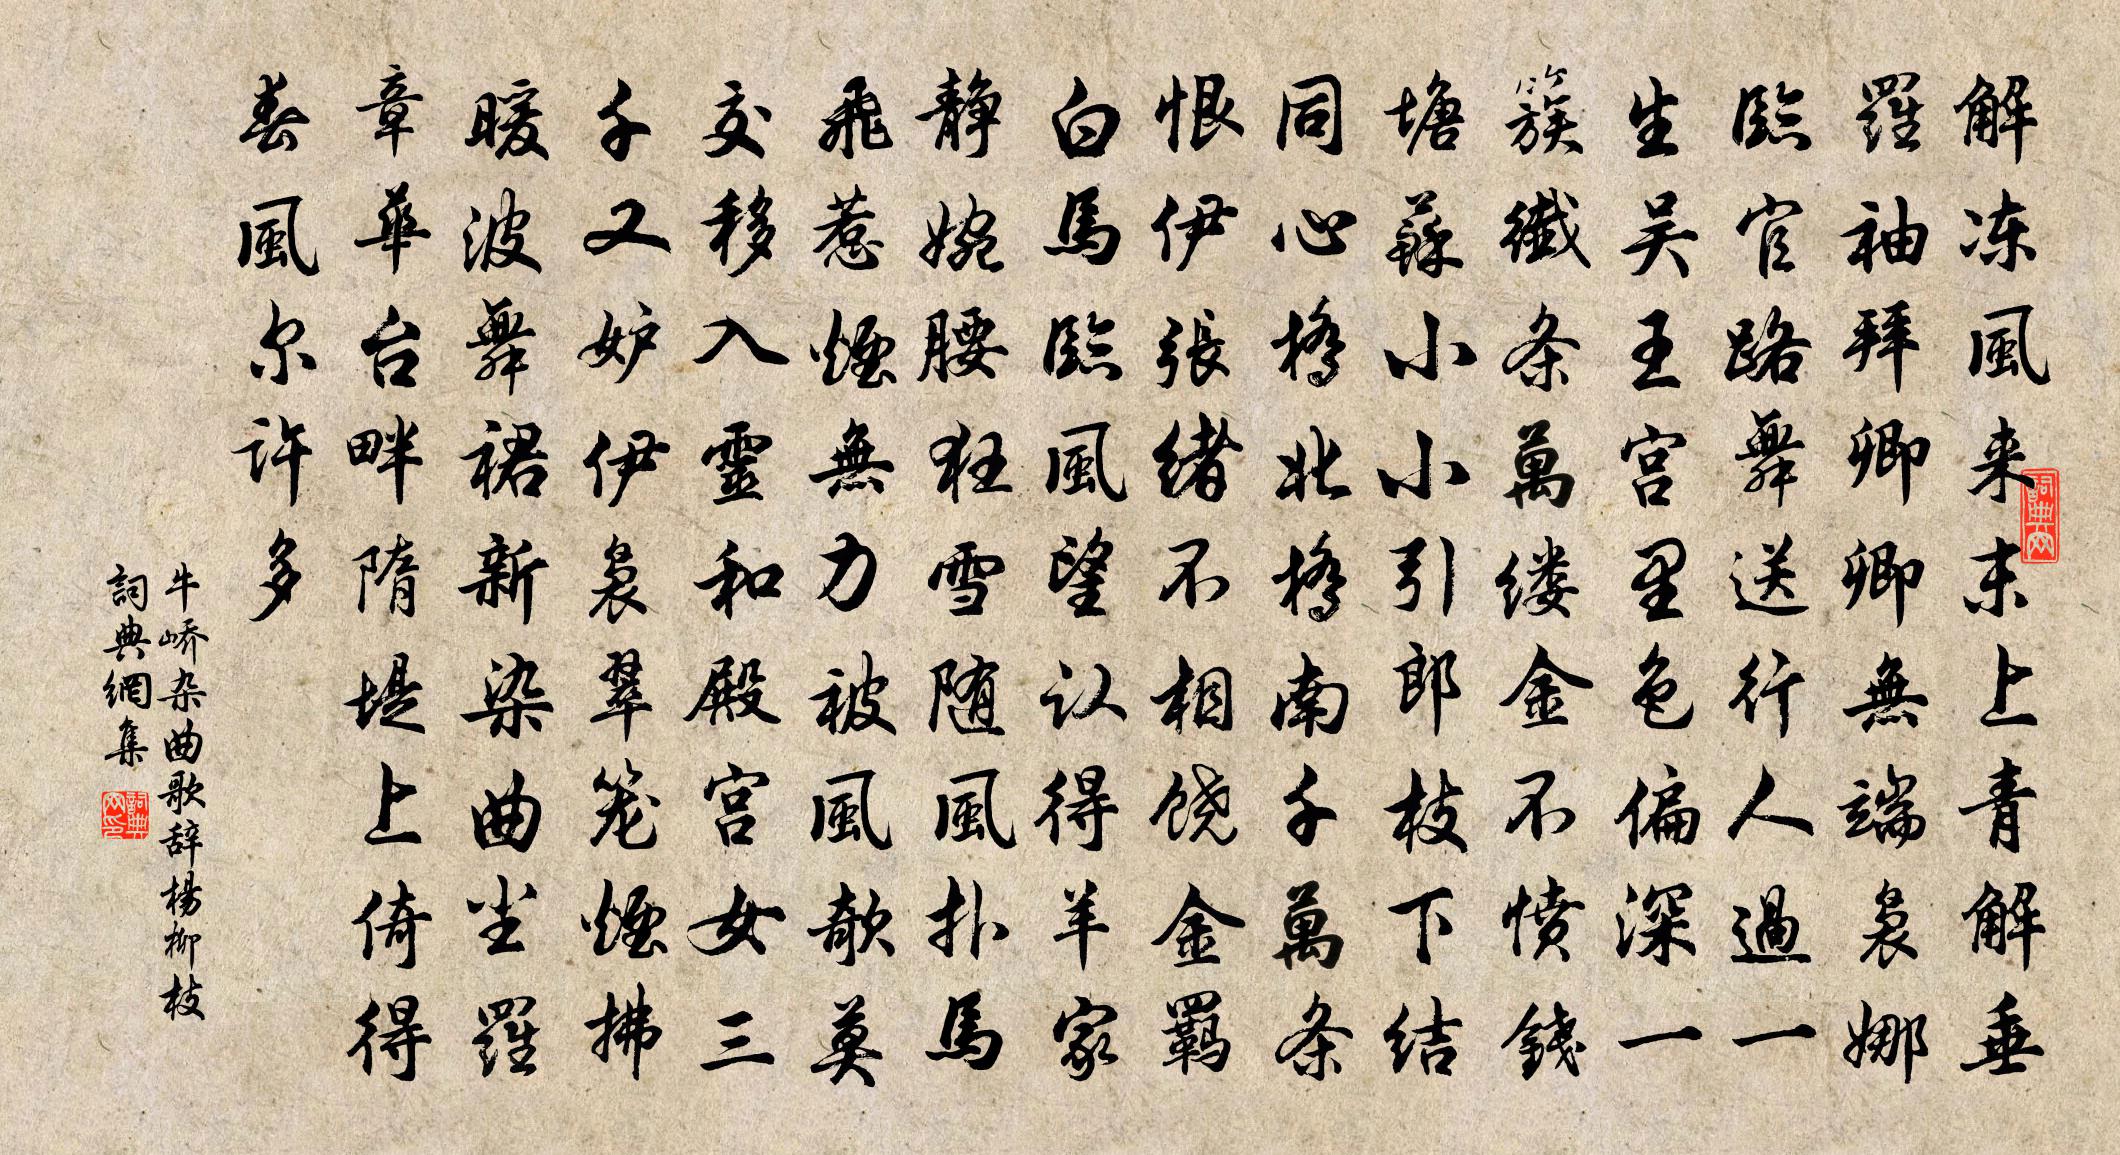 解冻風来末上青解垂
羅袖拜卿卿無端袅娜
臨官路舞送行人過一
生吴王宫里色偏深一
簇纖条萬缕金不愤錢
塘蘇小小引郎枝下结
同心橋北橋南千萬条
恨伊張绪不相饶金羁
白馬臨風望认得羊家
静婉腰狂雪随風扑馬
飛惹煙無力被風欹莫
交移入靈和殿宫女三
千又妒伊袅翠笼煙拂
暖波舞裙新染曲尘羅
章華台畔隋堤上倚得
春風尔许多
牛峤杂曲歌辞楊柳枝
詞典網集
詞典网
詞典网印